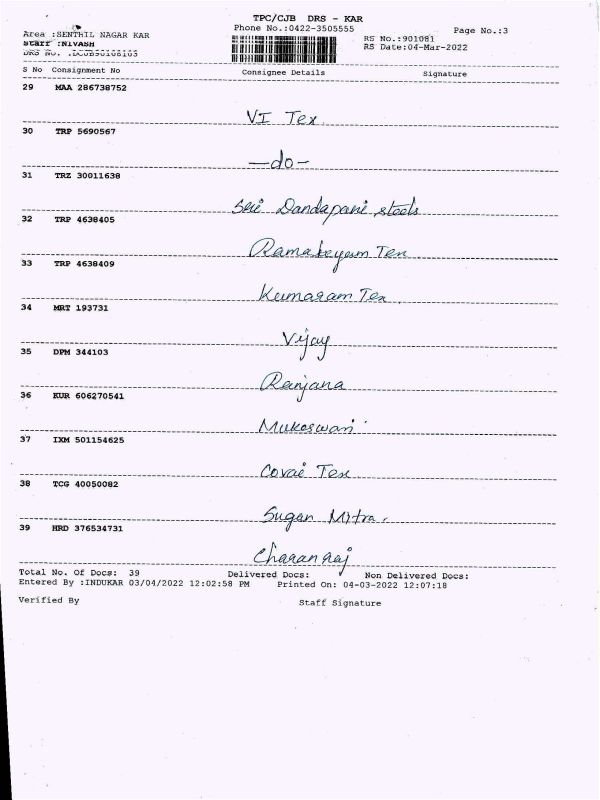 TPC/CJB DRS - KAR
Area :SENTHIL NAGAR KAR Phone No.:0422-3505555 Page No.:3
Staff :NIVASH RS No.:901081
DRS No. : RS Date:04-Mar-2022
S No Consignment No Consignee Details Signature
29 MAA 286738752
VI Tex
30 TRP 5690567
—do—
31 TRZ 30011638
Sri Dandapani steels
32 TRP 4638405
Ramakeyam Tex
33 TRP 4638409
Kumaram Tex
34 MRT 193731
Vijay
35 DPM 344103
Ranjana
36 KUR 606270541
Mukeswari
37 IXM 501154625
Covai Tex
38 TCG 40050082
Sugan Mitra.
39 HRD 376534731
Charanraj
Total No. Of Docs: 39 Delivered Docs: Non Delivered Docs:
Entered By :INDUKAR 03/04/2022 12:02:58 PM Printed On: 04-03-2022 12:07:18
Verified By Staff Signature